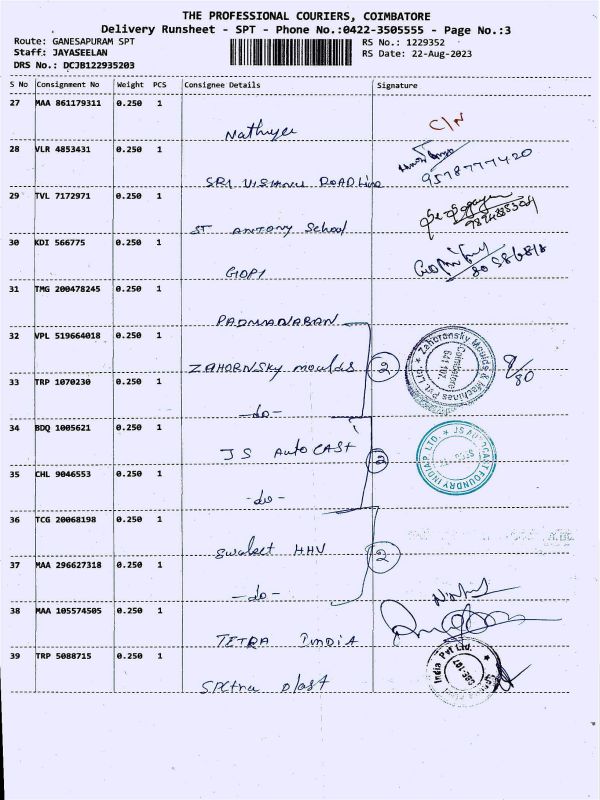 THE PROFESSIONAL COURIERS, COIMBATORE
Delivery Runsheet - SPT - Phone No.:0422-3505555 - Page No.:3
Route: GANESAPURAM SPT
RS No.: 1229352
Staff: JAYASEELAN
RS Date: 22-Aug-2023
DRS No.: DCJB122935203
S No Consignment No Weight PCS Consignee Details Signature
27 MAA 861179311 0.250 1
C/N
28 VLR 4853431 0.250 1
9578777420
SRI VISHNU ROAD Line
29 TVL 7172971 0.250 1
ST ANTONY School
30 KDI 566775 0.250 1
GOPI
31 TMG 200478245 0.250 1
PADMANABAN
32 VPL 519664018 0.250 1
ZAHORNSKY moulds 2 Zahoransky Moulds & Machines Pvt. Ltd. Coimbatore 641 107.
33 TRP 1070230 0.250 1
-do-
34 BDQ 1005621 0.250 1
JS AUTOCAST 2 JS AUTOCAST FOUNDRY INDIA P. LTD.
35 CHL 9046553 0.250 1
-do-
36 TCG 20068198 0.250 1
HHV 2
37 MAA 296627318 0.250 1
-do-
38 MAA 105574505 0.250 1
TETRA INDIA
39 TRP 5088715 0.250 1
India Pvt Ltd. CBE-107
SPCtra plast